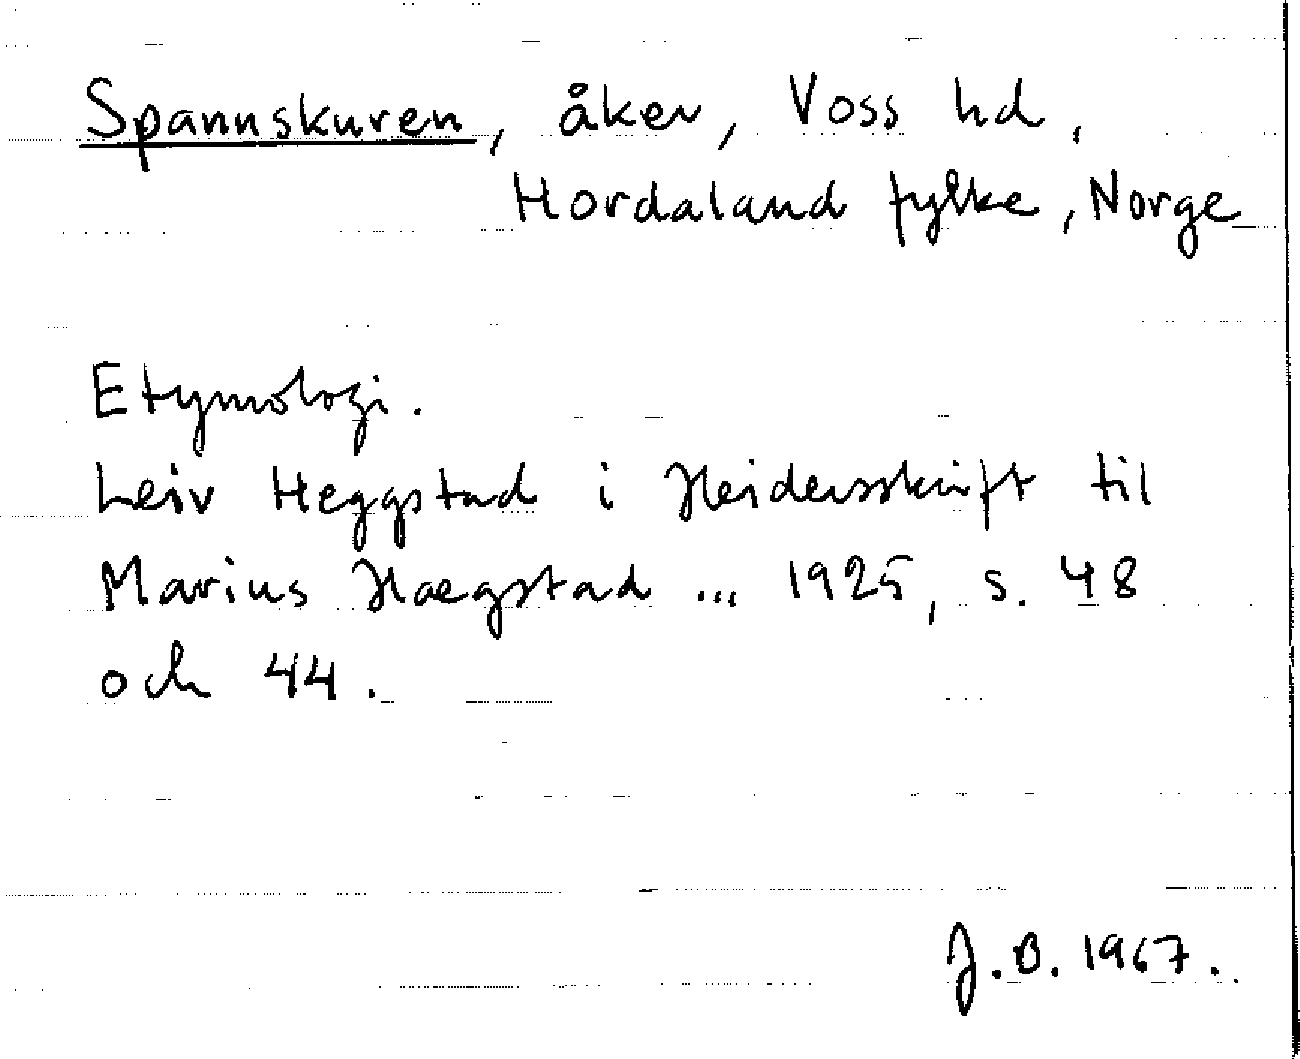 Spannskuren, åker, Voss hd,
Hordaland fylke, Norge
Etymologi.
Leiv Heggstad i Heidersskrift til
Marius Hægstad ... 1925, s. 48
och 44.
J.B. 1967.